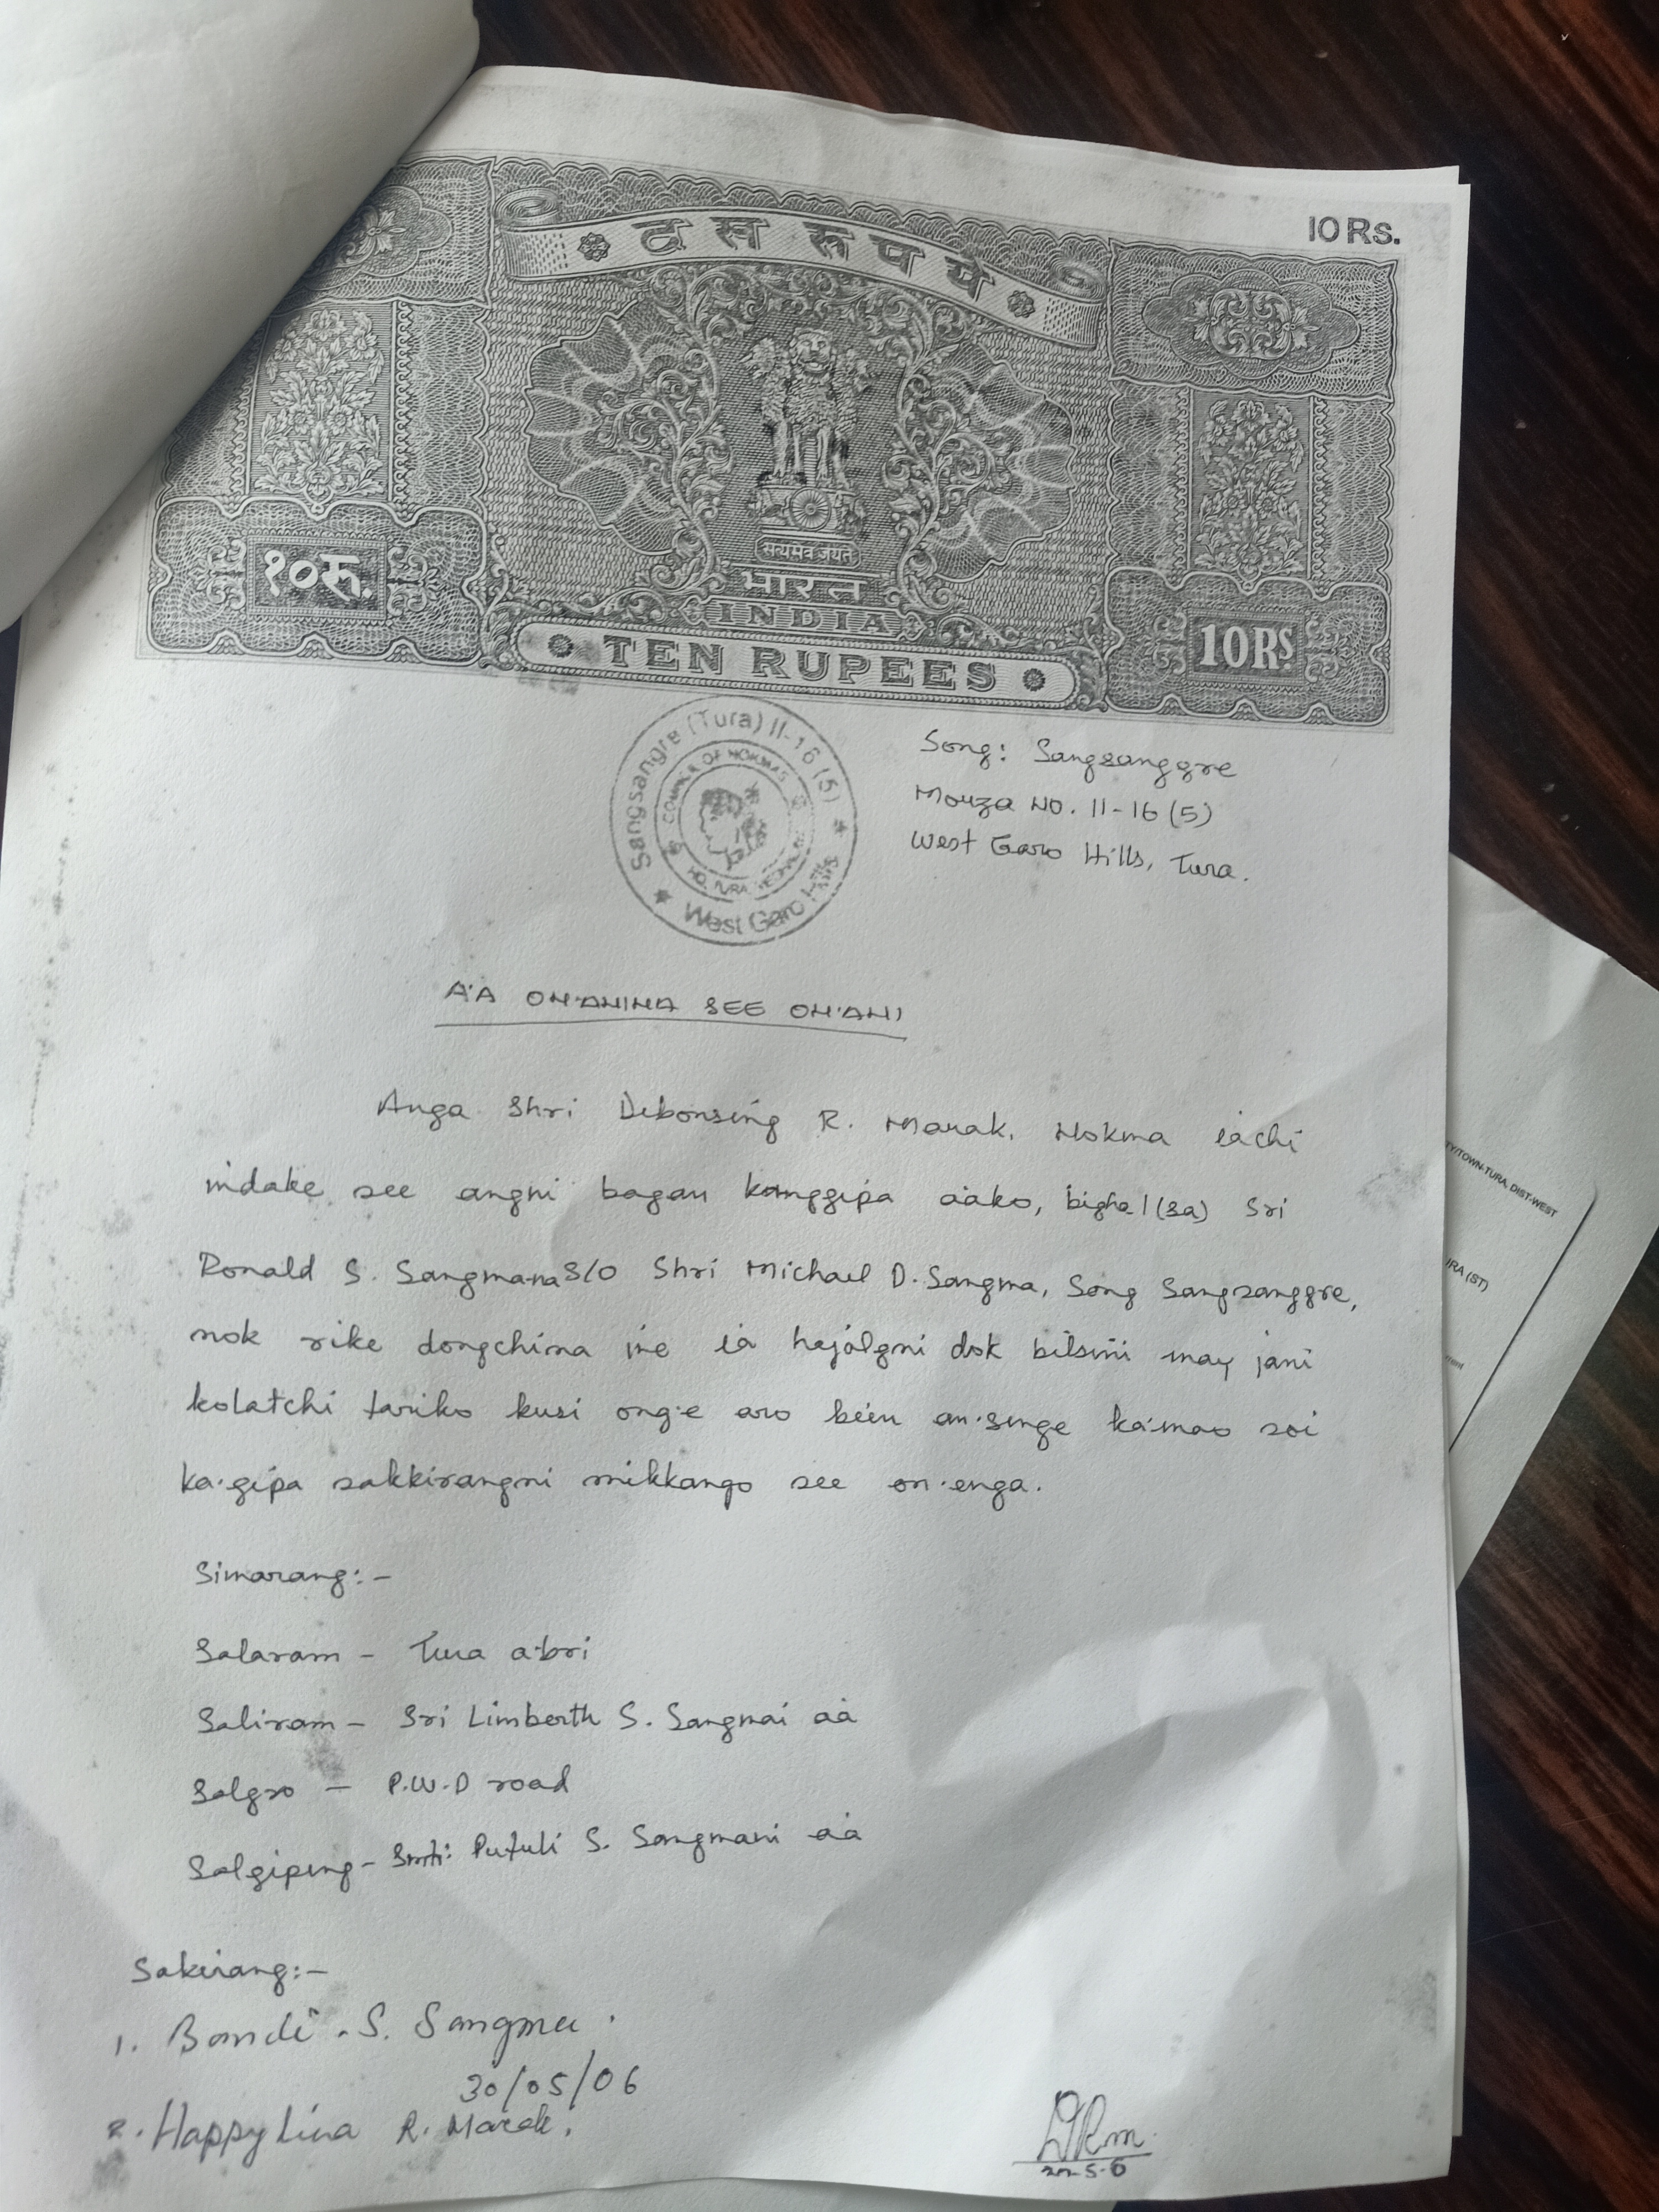 10 Rs.
दस रूपये
सत्यमेव जयते
भारत
INDIA
१०रू.
TEN RUPEES
10RS
Sangsangre (Tura) II-16 (5)
COUNCIL OF NOKMAS
HQ. TURA
West Garo Hills
Song: Sangsanggre
Mouza NO. II-16 (5)
West Garo Hills, Tura.
A'A ON'ANINA SEE ON'ANI
Anga Shri Debonsing R. Marak, Nokma iachi
indake see angni bagan kanggipa a'ako, bigha 1 (sa) Sri
Ronald S. Sangmana S/O Shri Michael D. Sangma, Song Sangsanggre,
nok rike dongchina ine ia hajalgni dok bilsini may jani
kolatchi tariko kusi ong·e aro be'en an·senge ka·mao soi
ka·gipa sakkirangni mikkango see on·enga.
Simarang:-
Salaram - Tura a·bri
Saliram - Sri Limberth S. Sangmai a'a
Salgro - P.W.D road
Salgipeng - Smti: Putuli S. Sangmani a'a
Sakirang:-
1. Bandi . S. Sangma .
30/05/06
2. Happylina R. Marak.
TY/TOWN-TURA, DIST-WEST
(ST)